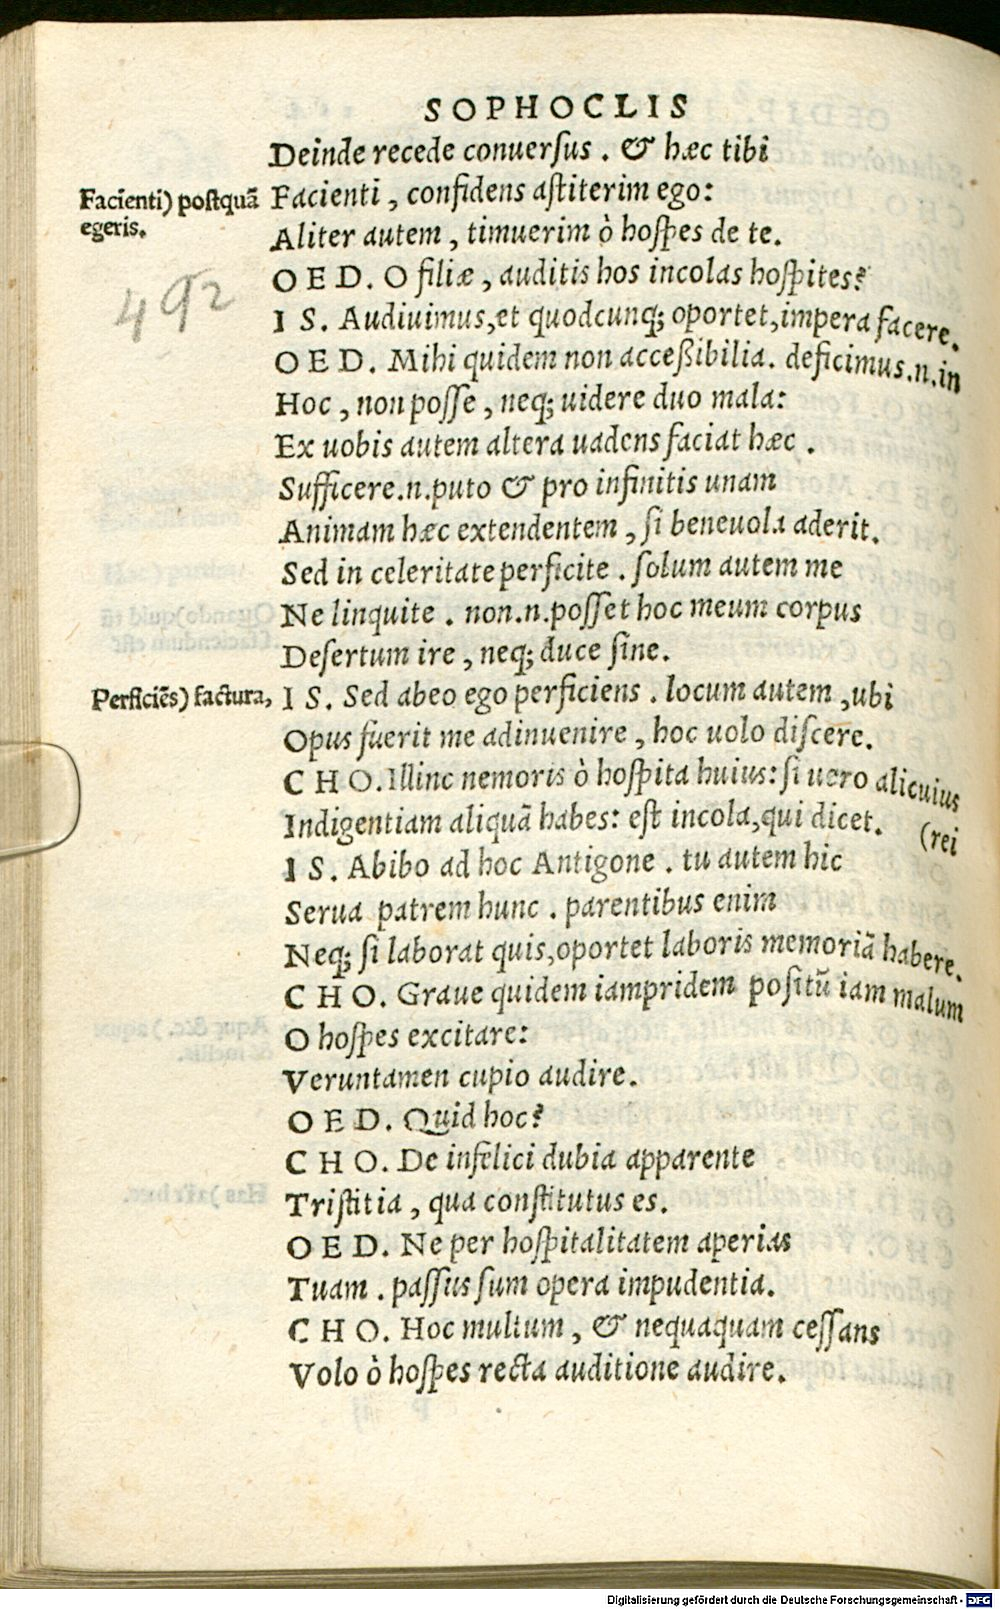 SOPHOCLIS
Deinde recede conuersus . & hæc tibi
Facienti) postquã
egeris.
Facienti , confidens astiterim ego:
Aliter autem , timuerim ò hospes de te.
OED. O filiæ , auditis hos incolas hospites?
492
IS. Audiuimus,et quodcunq; oportet,impera facere.
OED. Mihi quidem non accessibilia. deficimus.n.in
Hoc , non posse , neq; uidere duo mala:
Ex uobis autem altera uadens faciat hæc .
Sufficere.n.puto & pro infinitis unam
Animam hæc extendentem , si beneuola aderit.
Sed in celeritate perficite . solum autem me
Ne linquite . non.n.posset hoc meum corpus
Desertum ire , neq; duce sine.
Perficiẽs) factura,
IS. Sed abeo ego perficiens . locum autem ,ubi
Opus fuerit me adinuenire , hoc uolo discere.
CHO. Illinc nemoris ò hospita huius: si uero alicuius
Indigentiam aliquã habes: est incola,qui dicet. (rei
IS. Abibo ad hoc Antigone . tu autem hic
Serua patrem hunc . parentibus enim
Neq; si laborat quis,oportet laboris memoriã habere.
CHO. Graue quidem iampridem positũ iam malum
O hospes excitare:
Veruntamen cupio audire.
OED. Quid hoc?
CHO. De infelici dubia apparente
Tristitia , qua constitutus es.
OED. Ne per hospitalitatem aperias
Tuam . passus sum opera impudentia.
CHO. Hoc multum , & nequaquam cessans
Volo ò hospes recta auditione audire.
Digitalisierung gefördert durch die Deutsche Forschungsgemeinschaft - DFG